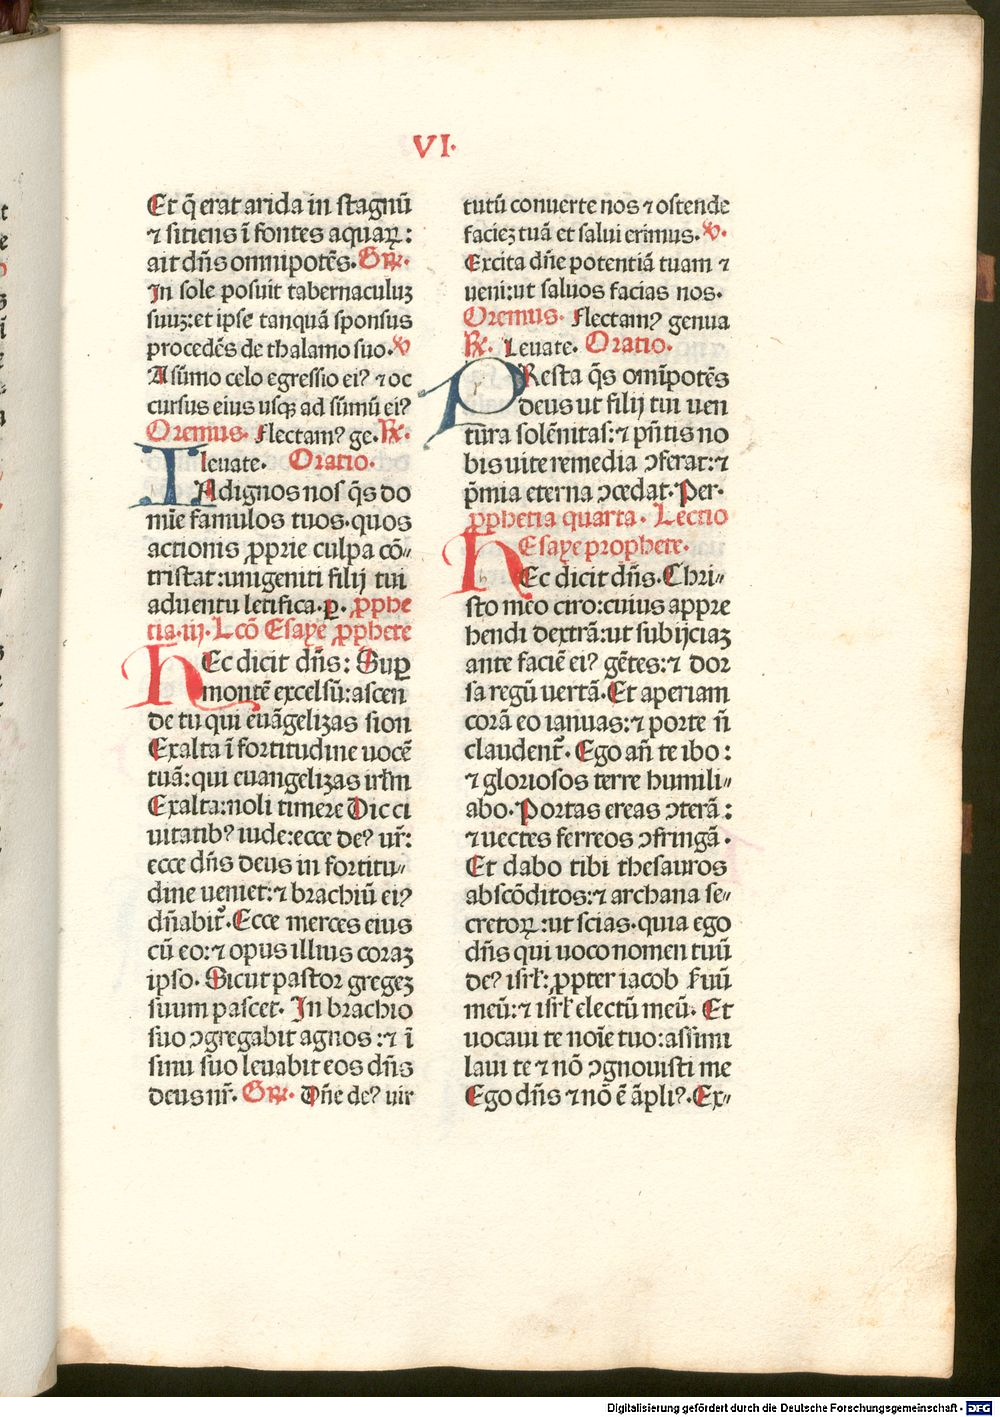 VI.
Et q̃ erat arida in stagnũ
⁊ sitiens ĩ fontes aquaꝝ:
ait dñs omnipotẽs. Gr̃.
In sole posuit tabernaculuꝫ
suuꝫ: et ipse tanquã sponsus
procedẽs de thalamo suo. ℣
A sũmo celo egressio eiꝰ ⁊ oc
cursus eius usqꝫ ad sũmũ eiꝰ
Oremus. Flectamꝰ ge. ℟.
leuate. Oratio.
INdignos nos q̃s do
mĩe famulos tuos. quos
actionis ꝓprie culpa cõ-
tristat: unigeniti filij tui
aduentu letifica. ꝑ. ꝓphe
tia. iij. Lcõ Esaye ꝓphete
HEc dicit dñs: Suꝑ
montẽ excelsũ: ascen
de tu qui euãgelizas sion
Exalta ĩ fortitudine uocẽ
tuã: qui euangelizas irl̃m
Exalta: noli timere Dic ci
uitatibꝰ iude: ecce deꝰ ur̃:
ecce dñs deus in fortitu-
dine ueniet: ⁊ brachiũ eiꝰ
dñabit̃. Ecce merces eius
cũ eo: ⁊ opus illius coraꝫ
ipso. Sicut pastor gregeꝫ
suum pascet. In brachio
suo ꝯgregabit agnos: ⁊ ĩ
sinu suo leuabit eos dñs
deus nr̃. Gr̃. Dñe deꝰ uir
tutũ conuerte nos ⁊ ostende
facieꝫ tuã et salui erimus. ℣.
Excita dñe potentiã tuam ⁊
ueni: ut saluos facias nos.
Oremus. Flectamꝰ genua
℟. Leuate. Oratio.
PResta q̃s omĩpotẽs
deus ut filij tui uen
tura solẽnitas: ⁊ pñtis no
bis uite remedia ꝯferat: ⁊
p̃mia eterna ꝯcedat. Per.
ꝓphetia quarta. Lectio
Esaye prophete.
HEc dicit dñs. Chri-
sto meo ciro: cuius appre
hendi dextrã: ut subijciaꝫ
ante faciẽ eiꝰ gẽtes: ⁊ dor
sa regũ uertã. Et aperiam
corã eo ianuas: ⁊ porte ñ
claudent̃. Ego añ te ibo:
⁊ gloriosos terre humili-
abo. Portas ereas ꝯterã:
⁊ uectes ferreos ꝯfringã.
Et dabo tibi thesauros
abscõditos: ⁊ archana se-
cretoꝝ: ut scias. quia ego
dñs qui uoco nomen tuũ
deꝰ isrl̃: ꝓpter iacob ſuũ
meũ: ⁊ isrl̃ electũ meũ. Et
uocaui te noĩe tuo: assimi
laui te ⁊ nõ ꝯgnouisti me
Ego dñs ⁊ nõ ẽ ãpliꝰ. Ex-
Digitalisierung gefördert durch die Deutsche Forschungsgemeinschaft - DFG